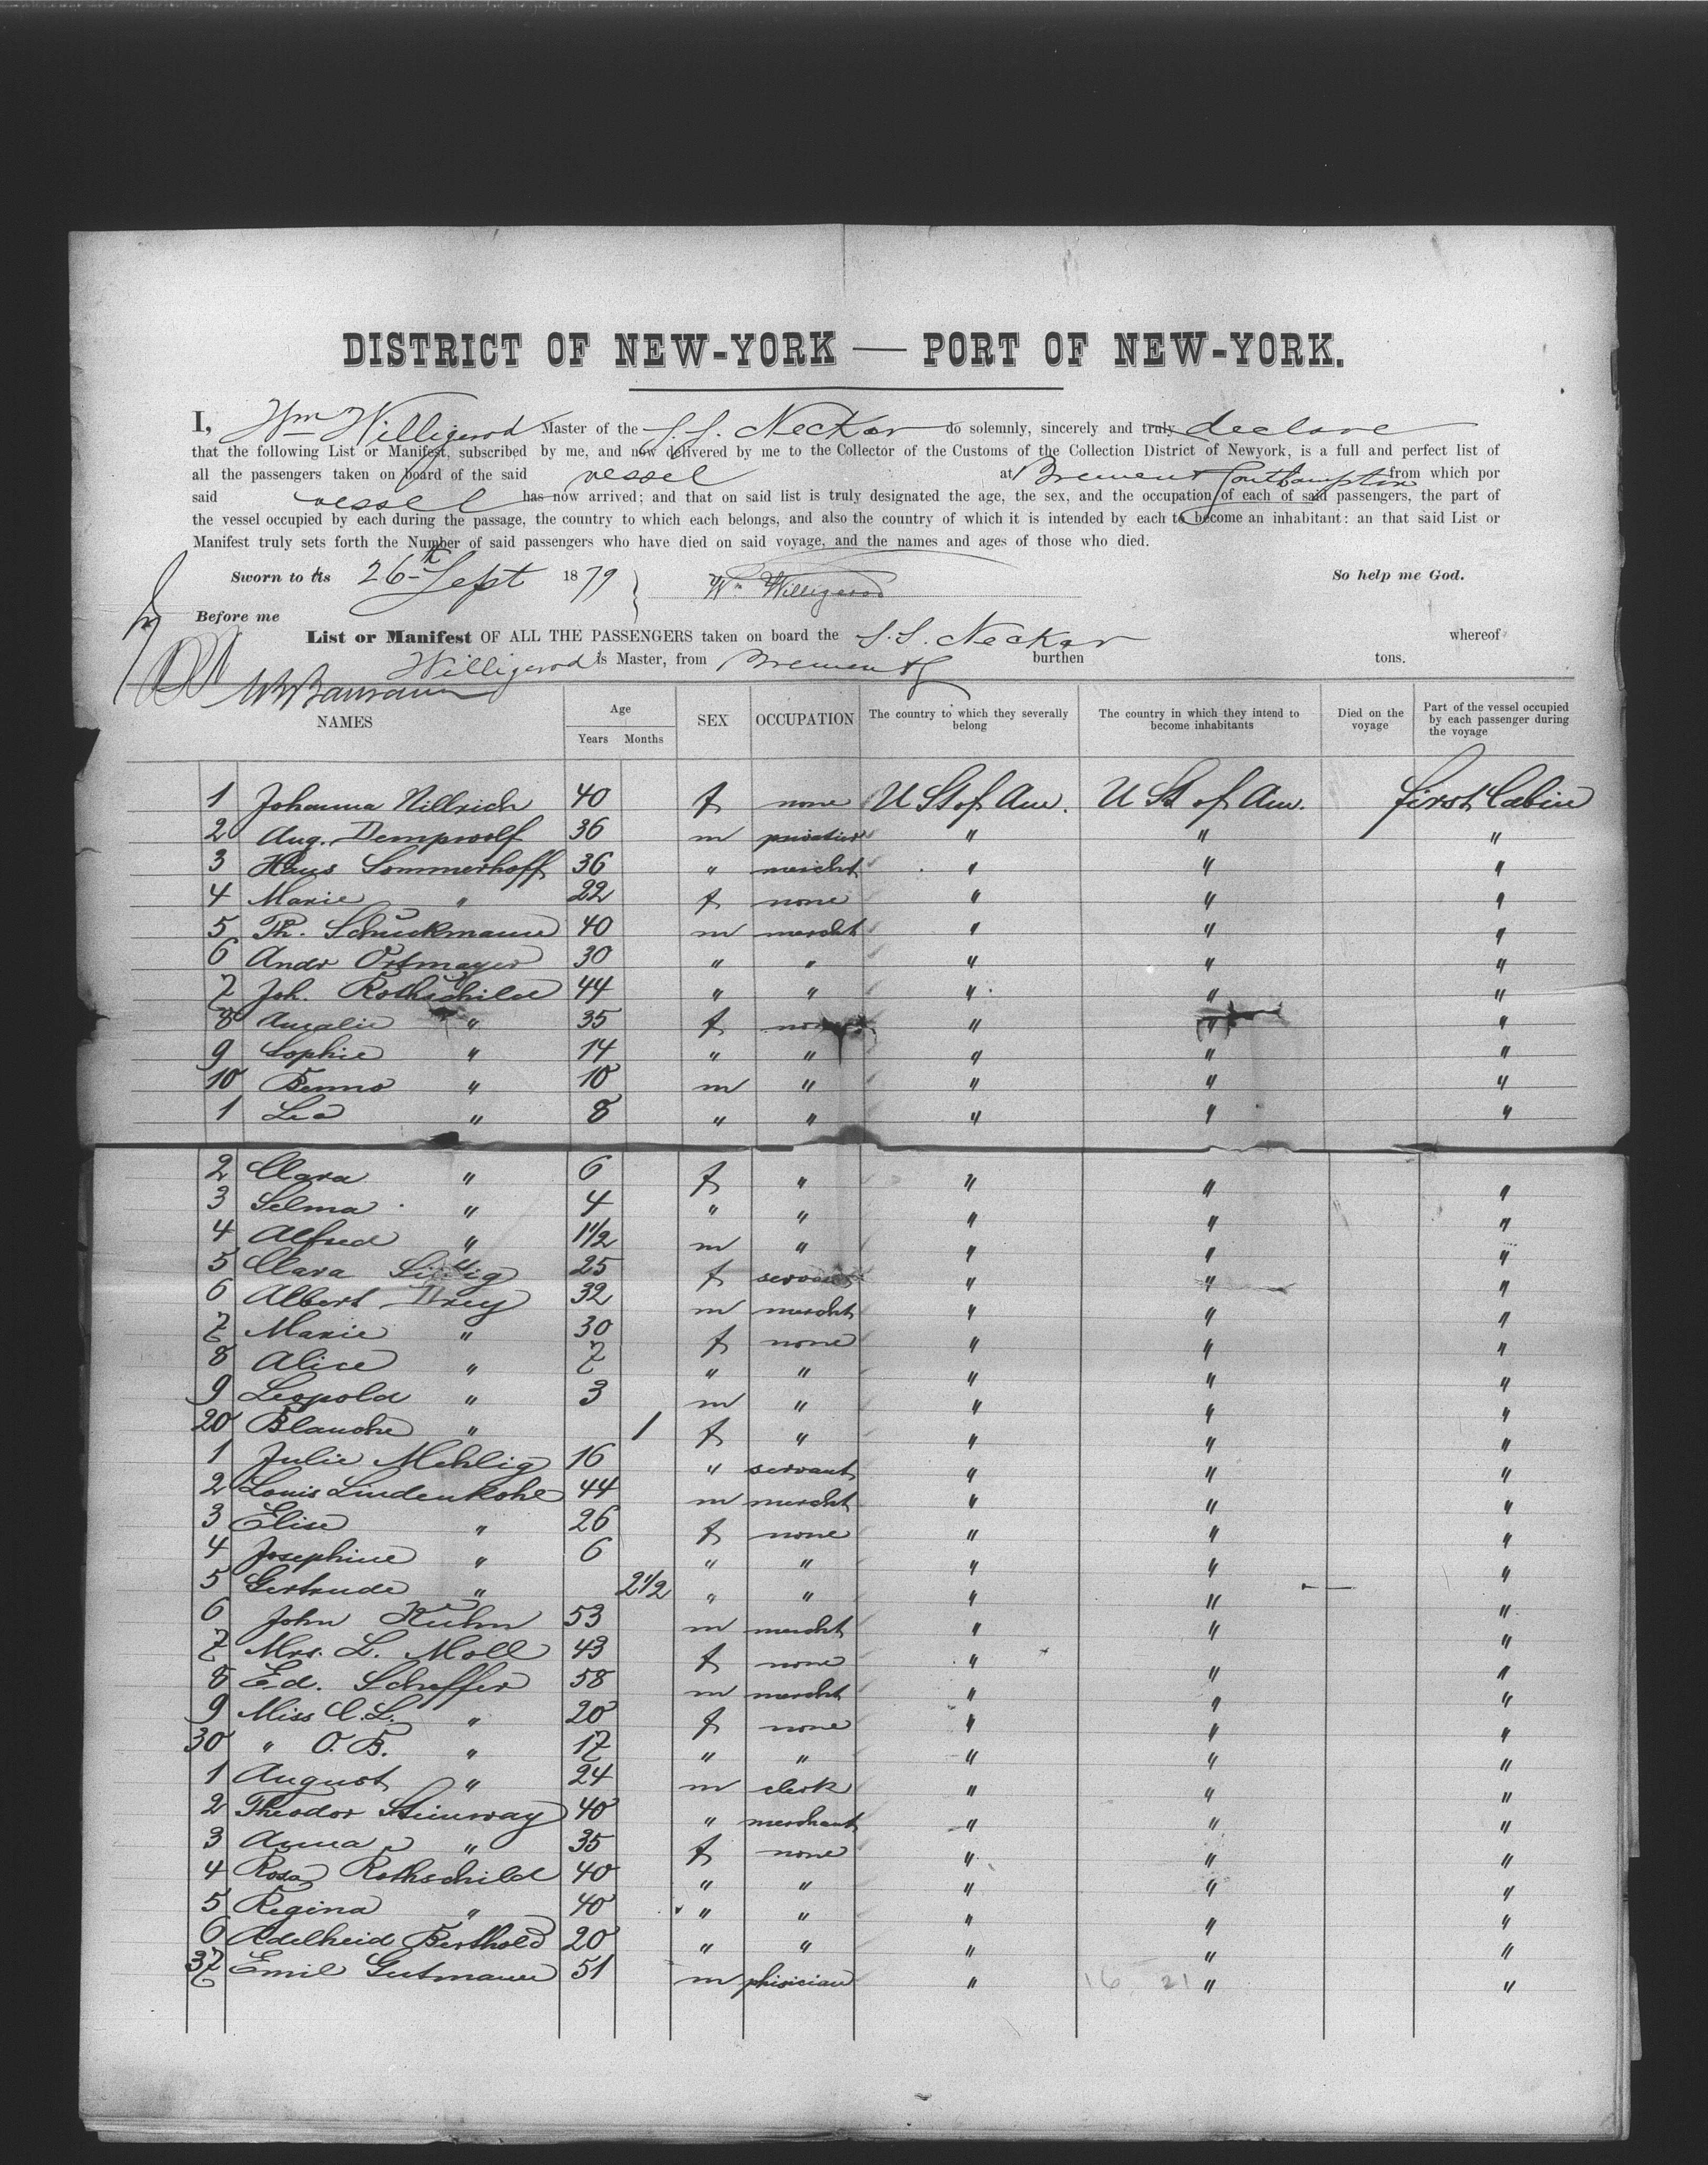 DISTRICT OF NEW-YORK — PORT OF NEW-YORK.
I, Wm Willigerod Master of the S.S. Neckar do solemnly, sincerely and truly declare
that the following List or Manifest, subscribed by me, and now delivered by me to the Collector of the Customs of the Collection District of Newyork, is a full and perfect list of
all the passengers taken on board of the said vessel at Bremen & Southampton from which por
said vessel has now arrived; and that on said list is truly designated the age, the sex, and the occupation of each of said passengers, the part of
the vessel occupied by each during the passage, the country to which each belongs, and also the country of which it is intended by each to become an inhabitant: an that said List or
Manifest truly sets forth the Number of said passengers who have died on said voyage, and the names and ages of those who died.
Sworn to this 26th Sept 1879 Wm Willigerod So help me God.
Before me
List or Manifest OF ALL THE PASSENGERS taken on board the S.S. Neckar whereof
Willigerod is Master, from Bremen & burthen tons.
NAMES Age Years Months SEX OCCUPATION The country to which they severally belong The country in which they intend to become inhabitants Died on the voyage Part of the vessel occupied by each passenger during the voyage
1 Johanna Hillrich 40 f none U St of Am. U St of Am. first Cabin
2 Aug. Dempwolf 36 m " " "
3 Hans Sommerhoff 36 " mercht " " "
4 Marie " 22 f none " " "
5 Th. Schückmann 40 m mercht " " "
6 Andr Ortmayer 30 " " " " "
7 Joh. Rothschild 44 " " " " "
8 Amalie " 35 f none " " "
9 Sophie " 14 " " " " "
10 Benno " 10 m " " " "
1 Leo " 8 " " " " "
2 Clara " 6 f " " " "
3 Selma " 4 " " " " "
4 Alfred " 1 1/2 m " " " "
5 Clara 25 f servant " " "
6 Albert Drey 32 m mercht " " "
7 Marie " 30 f none " " "
8 Alice " 7 " " " " "
9 Leopold " 3 m " " " "
20 Blanche " 1 f " " " "
1 Julie Mehlig 16 " servant " " "
2 Louis Lindenkohl 44 m mercht " " "
3 Elise " 26 f none " " "
4 Josephine " 6 " " " " "
5 Gertrude " 2 1/2 " " " " "
6 John Kühn 53 m mercht " " "
7 Mrs. L. Moll 43 f none " " "
8 Ed. Scheffer 58 m mercht " " "
9 Miss C. L. " 20 f none " " "
30 " O. B. " 17 " " " " "
1 August " 24 m clerk " " "
2 Theodor Steinway 40 " merchant " " "
3 Anna " 35 f none " " "
4 Rosa Rothschild 40 " " " " "
5 Regina " 40 " " " " "
6 Adelheid Berthold 20 " " " " "
37 Emil Gutmann 51 m phisician " " "
16 21